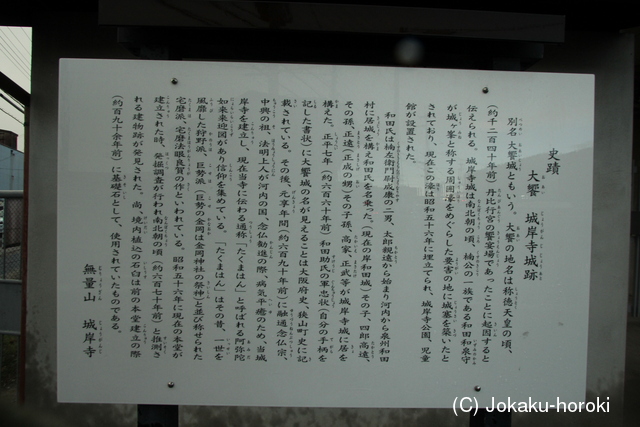 史蹟
大饗 城岸寺城跡
別名 大饗城ともいう。大饗の地名は称徳天皇の頃、
(約千二百四十年前)丹比行宮の饗宴場であったことに起因すると
伝えられる。城岸寺城は南北朝の頃、楠公の一族である和田和泉守
が城ヶ峯と称する周囲濠をめぐらした要害の地に城塞を築いたと
されており、現在この濠は昭和五十六年に埋立てられ、城岸寺公園、児童
館が設置された。
和田氏は楠左衛門尉成康の二男、太郎親遠から始まり河内から泉州和田
村に居城を構え和田氏を名乗った。(現在の岸和田)その子、四郎高遠、
その孫、正遠(正成の甥)その子孫、高家、正武等が城岸寺城に居を
構えた。正平七年(約六百六十年前)和田助氏の軍忠状(自分の手柄を
記した書状)に大饗城の名が見えることは大阪府史、狭山町史に記
載されている。その後、元享年間(約六百九十年前)に融通念仏宗、
中興の祖、法明上人が河内の国、念仏勧進の際、病気平癒のため、当城
岸寺を建立し、現在当寺に伝わる通称「たくまはん」と呼ばれる阿弥陀
如来来迎図があり信仰を集めている。「たくまはん」はその昔、一世を
風靡した狩野派、巨勢派(巨勢の金岡は金岡神社の祭神)と並び称せられた
宅磨派、宅磨法眼良賀の作といわれている。昭和五十六年に現在の本堂が
建立された時、発掘調査が行われ南北朝の頃(約六百七十年前)と推測さ
れる建物跡が発見された。尚、境内植込の石臼は前の本堂建立の際
(約百九十余年前)に基礎石として、使用されていたものである。
無量山 城岸寺
(C) Jokaku-horoki